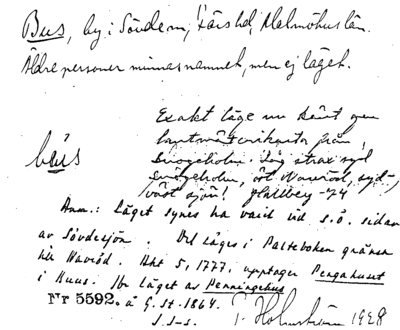 Bus, by i Sövdem, Färs hd, Malmöhus län.
Äldre personer minnas namnet, men ej läget.
Exakt läge nu känt gen
lantmäterikarta från
Snogeholm. Låg strax syd
Snogeholm, öst Navröd, syd-
väst sjön! Hallberg -74
bẹ́u̇s
Anm.: Läget synes ha varit vid s.ö. sidan
av Sövdesjön. Det läges i Palteboken gränsa
till Navröd. Akt 5, 1777, upptager Pengahuset
i Kuus. Jfr läget av Penningehus
Nr 5592. å G. St. 1864.
S.S-s. T. Holmström 1928